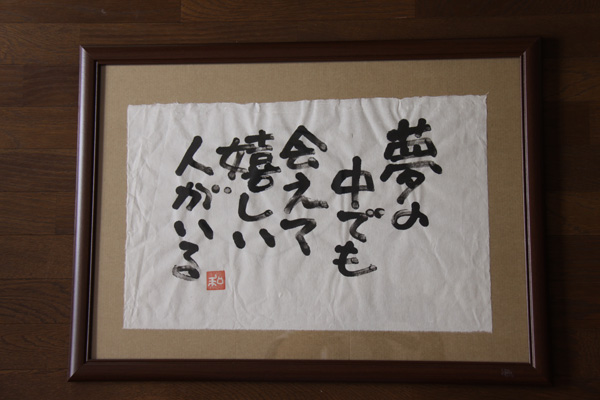 夢の
中でも
会えて
嬉しい
人がいる
和